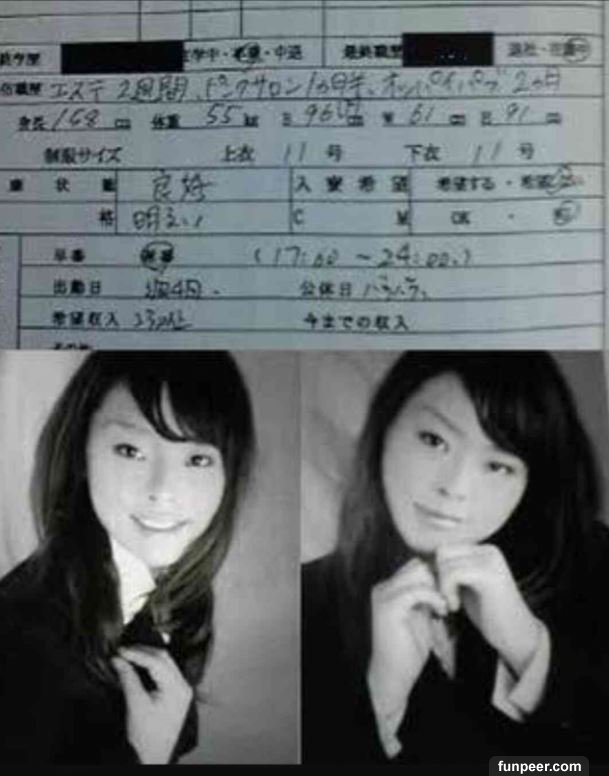 学中・卒業・中退 最終職歴 退社・在職中
職歴 エステ 2週間、ピンクサロン1ヵ月半、オッパイパブ 2ヵ月
身長 158 cm 体重 55 kg B 96 cm W 61 cm H 91 cm
制服サイズ 上衣 11 号 下衣 11 号
康状態 良好 入寮希望 希望する・希望しない
格 明るい C M OK・否
早番 遅番 (17:00 ~ 24:00)
出勤日 週4日 公休日 バラバラ
希望収入 今までの収入
その他
funpeer.com